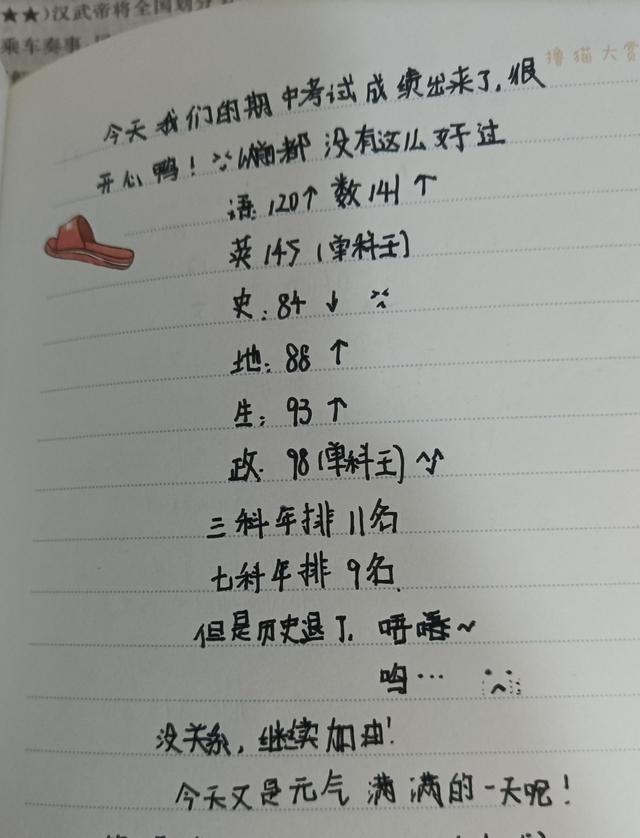 ★★)汉武帝将全国划分
乘车奏事
撸猫大赏
今天我们的期中考试成绩出来了,很
开心鸭! 都没有这么好过
语:120↑ 数141↑
英145(单科王)
史:84↓
地:88↑
生:93↑
政:98(单科王)
三科年排11名
七科年排9名.
但是历史退了.唔唔~
呜…
没关系,继续加油!
今天又是元气满满的一天呢!